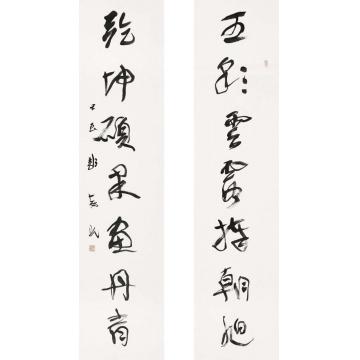 五彩雲霞擁朝旭
乾坤碩果畫丹青